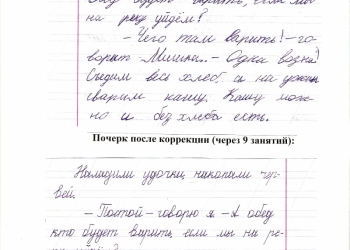 на реку уйдём?
— Чего там варить! – го-
ворит Мишка. – Одна возня!
Съедим весь хлеб, а на ужин
сварим кашу. Кашу мож-
но и без хлеба есть.
Почерк после коррекции (через 9 занятий):
Наладили удочки, накопали чер-
вей.
— Постой – говорю я – А обед
кто будет варить, если мы на ре-